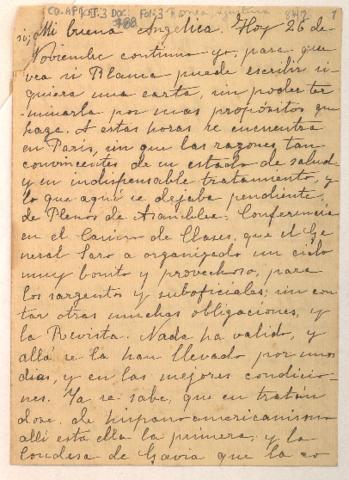 CO. AP. LOT. 3 DOC. Fol. 3
Mi buena Angelica. Hoy 26 de
Noviembre continuo yo, para que
vea si Blanca puede escribir si-
quiera una carta, sin poder ter-
minarla por mas propósitos que
haga. A estas horas se encuentra
en París, sin que las razones tan
convincentes de su estado de salud,
y su indispensable tratamiento, y
lo que aquí se dejaba pendiente,
de Plenos de Asamblea: Conferencia
en el Casino de Clases, que el Ge-
neral Saro a organizado un ciclo
muy bonito y provechoso, para
los sargentos y suboficiales; sin con-
tar otras muchas obligaciones, y
la Revista. Nada ha valido, y
allá se la han llevado por unos
dias, y en las mejores condicio-
nes. Ya se sabe, que en tratán
dose de hispanoamericanismo
allí está ella la primera; y la
Condesa de Gavia que la co